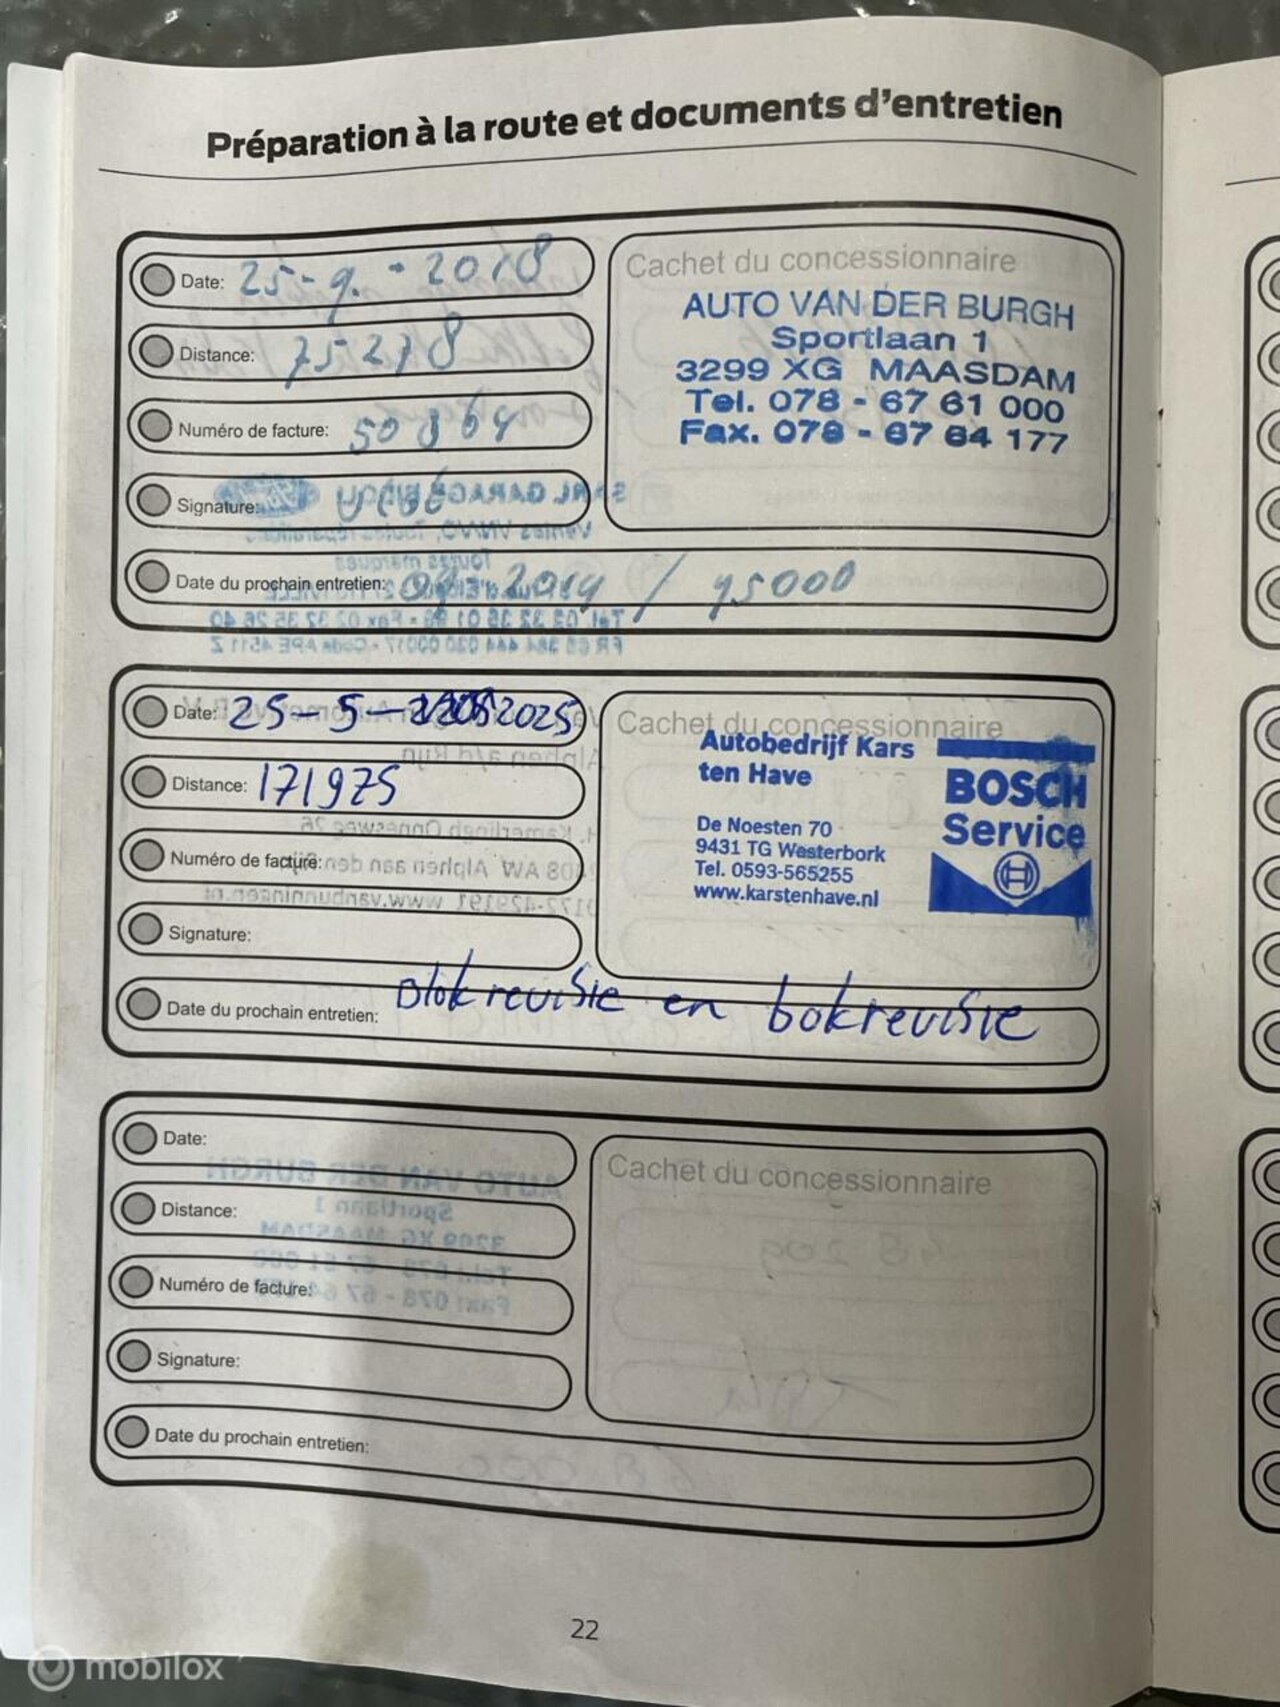 Préparation à la route et documents d'entretien
Date: 25-9.-2018
Distance: 75278
Numéro de facture: 50864
Signature:
Date du prochain entretien: 09 2019 / 95000
Cachet du concessionnaire
AUTO VAN DER BURGH
Sportlaan 1
3299 XG MAASDAM
Tel. 078 - 67 61 000
Fax. 078 - 67 64 177
Date: 25-5- 2025
Distance: 171975
Numéro de facture:
Signature:
Date du prochain entretien: Blokrevisie en bokrevisie
Cachet du concessionnaire
Autobedrijf Kars
ten Have
De Noesten 70
9431 TG Westerbork
Tel. 0593-565255
www.karstenhave.nl
BOSCH
Service
Date:
Distance:
Numéro de facture:
Signature:
Date du prochain entretien:
Cachet du concessionnaire
22
mobilox